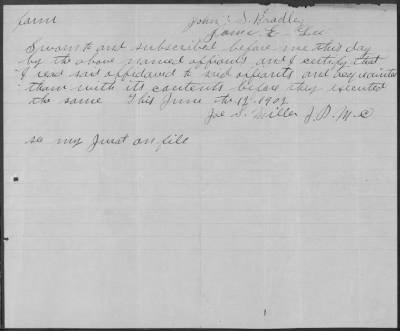 farm John S. Bradley
James E. Lee
Sworn to and subscribed before me this day
by the above named affiants and I certify that
I read said affidavid to said affiants and acquainted
them with its contents before they executed
the same This June the 12, 1902
Joe S. Miller J. P. M. C
see my Jurat on file